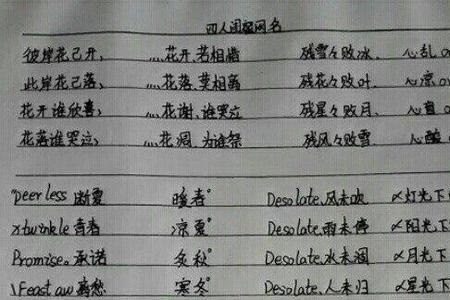 四人闺蜜网名
彼岸花己开、 灬花开、若相惜 残雪々败冰、 心乱
此岸花己落、 灬花落、莫相离 残花々败叶、 心凉
花开谁欣喜、 灬花谢、谁哭泣 残星々败月、 心
花落谁哭泣、 灬花凋、为谁祭 残风々败雪 心酸
peerless 断夏 暖春° Desolate、风未吹 〆灯光下
twinkle 青春 凉夏° Desolate、雨未停 〆阳光下
Promise。承诺 冬秋° Desolate、水未涸 〆月光下
Feast aw 离愁 寒冬° Desolate、人未归 〆星光下